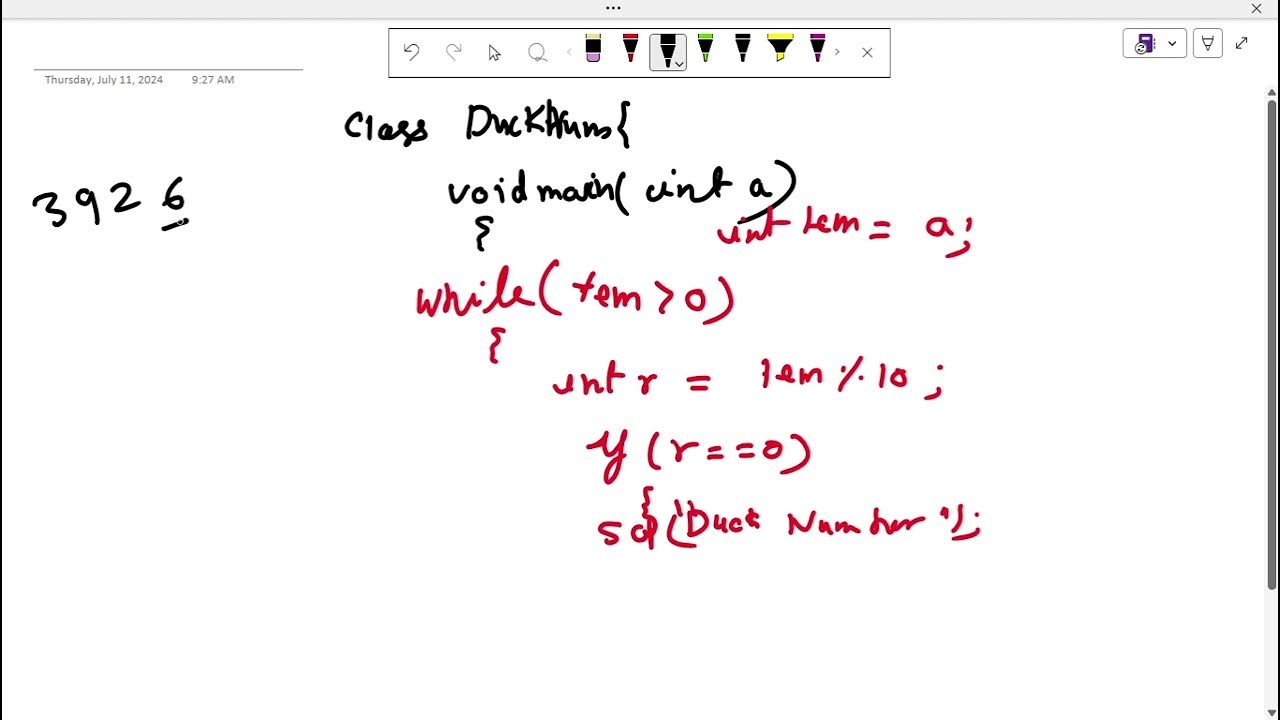 Thursday, July 11, 2024 9:27 AM
class DuckNum{
3926
void main(int a)
{
int tem = a;
while(tem>0)
{
int r = tem%10;
if(r==0)
{
sop("Duck Number");